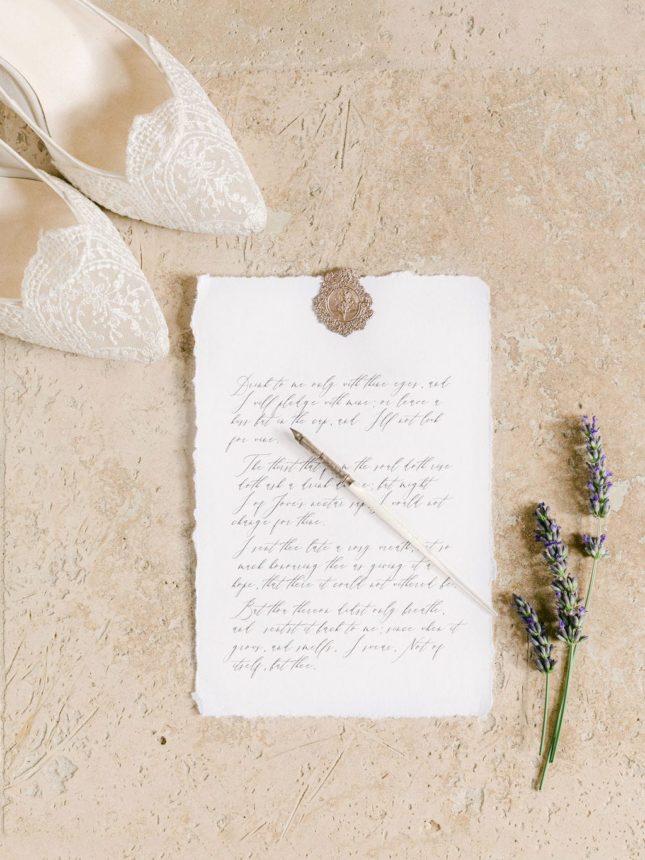 Drink to me only with thine eyes, and
I will pledge with mine; or leave a
kiss but in the cup, and I'll not look
for wine.
The thirst that from the soul doth rise
doth ask a drink divine; but might
I of Jove's nectar sup, I would not
change for thine.
I sent thee late a rosy wreath, not so
much honoring thee as giving it a
hope, that there it could not withered be.
But thou thereon didst only breathe,
and sentst it back to me; since when it
grows, and smells, I swear, Not of
itself, but thee.